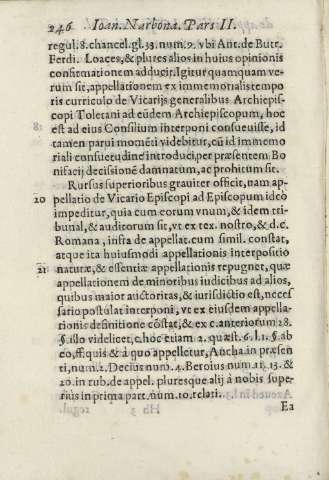 246 Ioan. Narbona. Pars II.
regul. 8. chancel. gl. 33. num. 9. vbi Ant. de Butr.
Ferdi. Loaces, & plures alios in huius opinionis
confirmationem adducit. Igitur quamquam ve-
rum sit, appellationem ex immemorialis tempo
ris curriculo de Vicarijs generalibus Archiepis-
copi Toletani ad eũdem Archiepiscopum, hoc
18 est ad eius Consilium interponi consueuisse, id
tamen parui momẽti videbitur, cũ id immemo
riali consuetudine introduci, per præsentem Bo
nifacij decisionẽ damnatum, ac prohitum sit.
Rursus superioribus grauiter officit, nam ap-
20 pellatio de Vicario Episcopi ad Episcopum ideò
impeditur, quia cum eorum vnum, & idem tri-
bunal, & auditorium sit, vt ex tex. nostro, & d. c.
Romana, infra de appellat. cum simil. constat,
atque ita huiusmodi appellationis interpositio
21 naturæ, & essentiæ appellationis repugnet, quæ
appellationem de minoribus iudicibus ad alios,
quibus maior auctoritas, & iurisdictio est, neces
sario postulat interponi, vt ex eiusdem appella-
tionis definitione cõstat, & ex c. anteriorum 28.
§. illo videlicet, c. hoc etiam 2. quæst. 6. l. 1. §. ab
eo, ff. quis & à quo appelletur, Ancha. in præsen
ti, num. 2. Decius num. 4. Beroius num. 11. 13. &
20. in rub. de appel. pluresque alij à nobis supe-
rius in prima part. nũm. 10. relati.
Ea